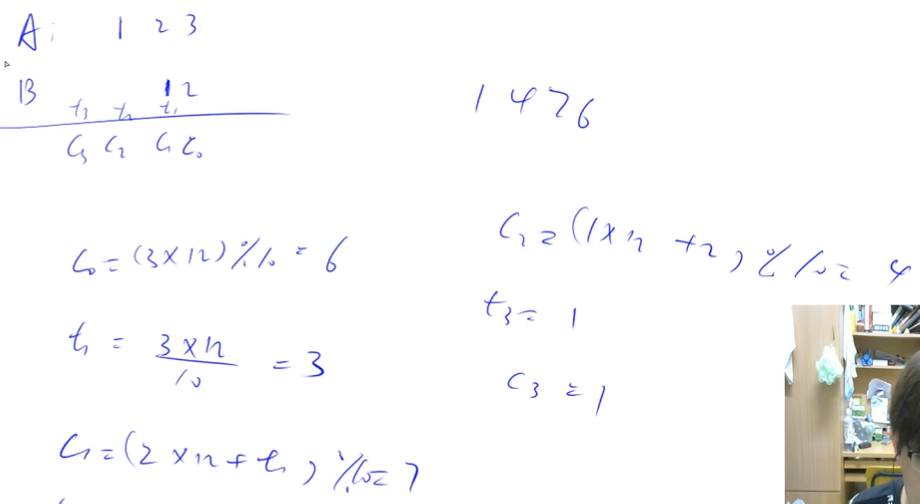 A: 1 2 3
B 12
t₃ t₂ t₁
C₃ C₂ C₁ C₀
1476
C₀ = (3×12)%10 = 6
t₁ = 3×12/10 = 3
C₁ = (2×12+t₁)%10 = 7
C₂ = (1×12+2)%10 = 4
t₃ = 1
C₃ = 1